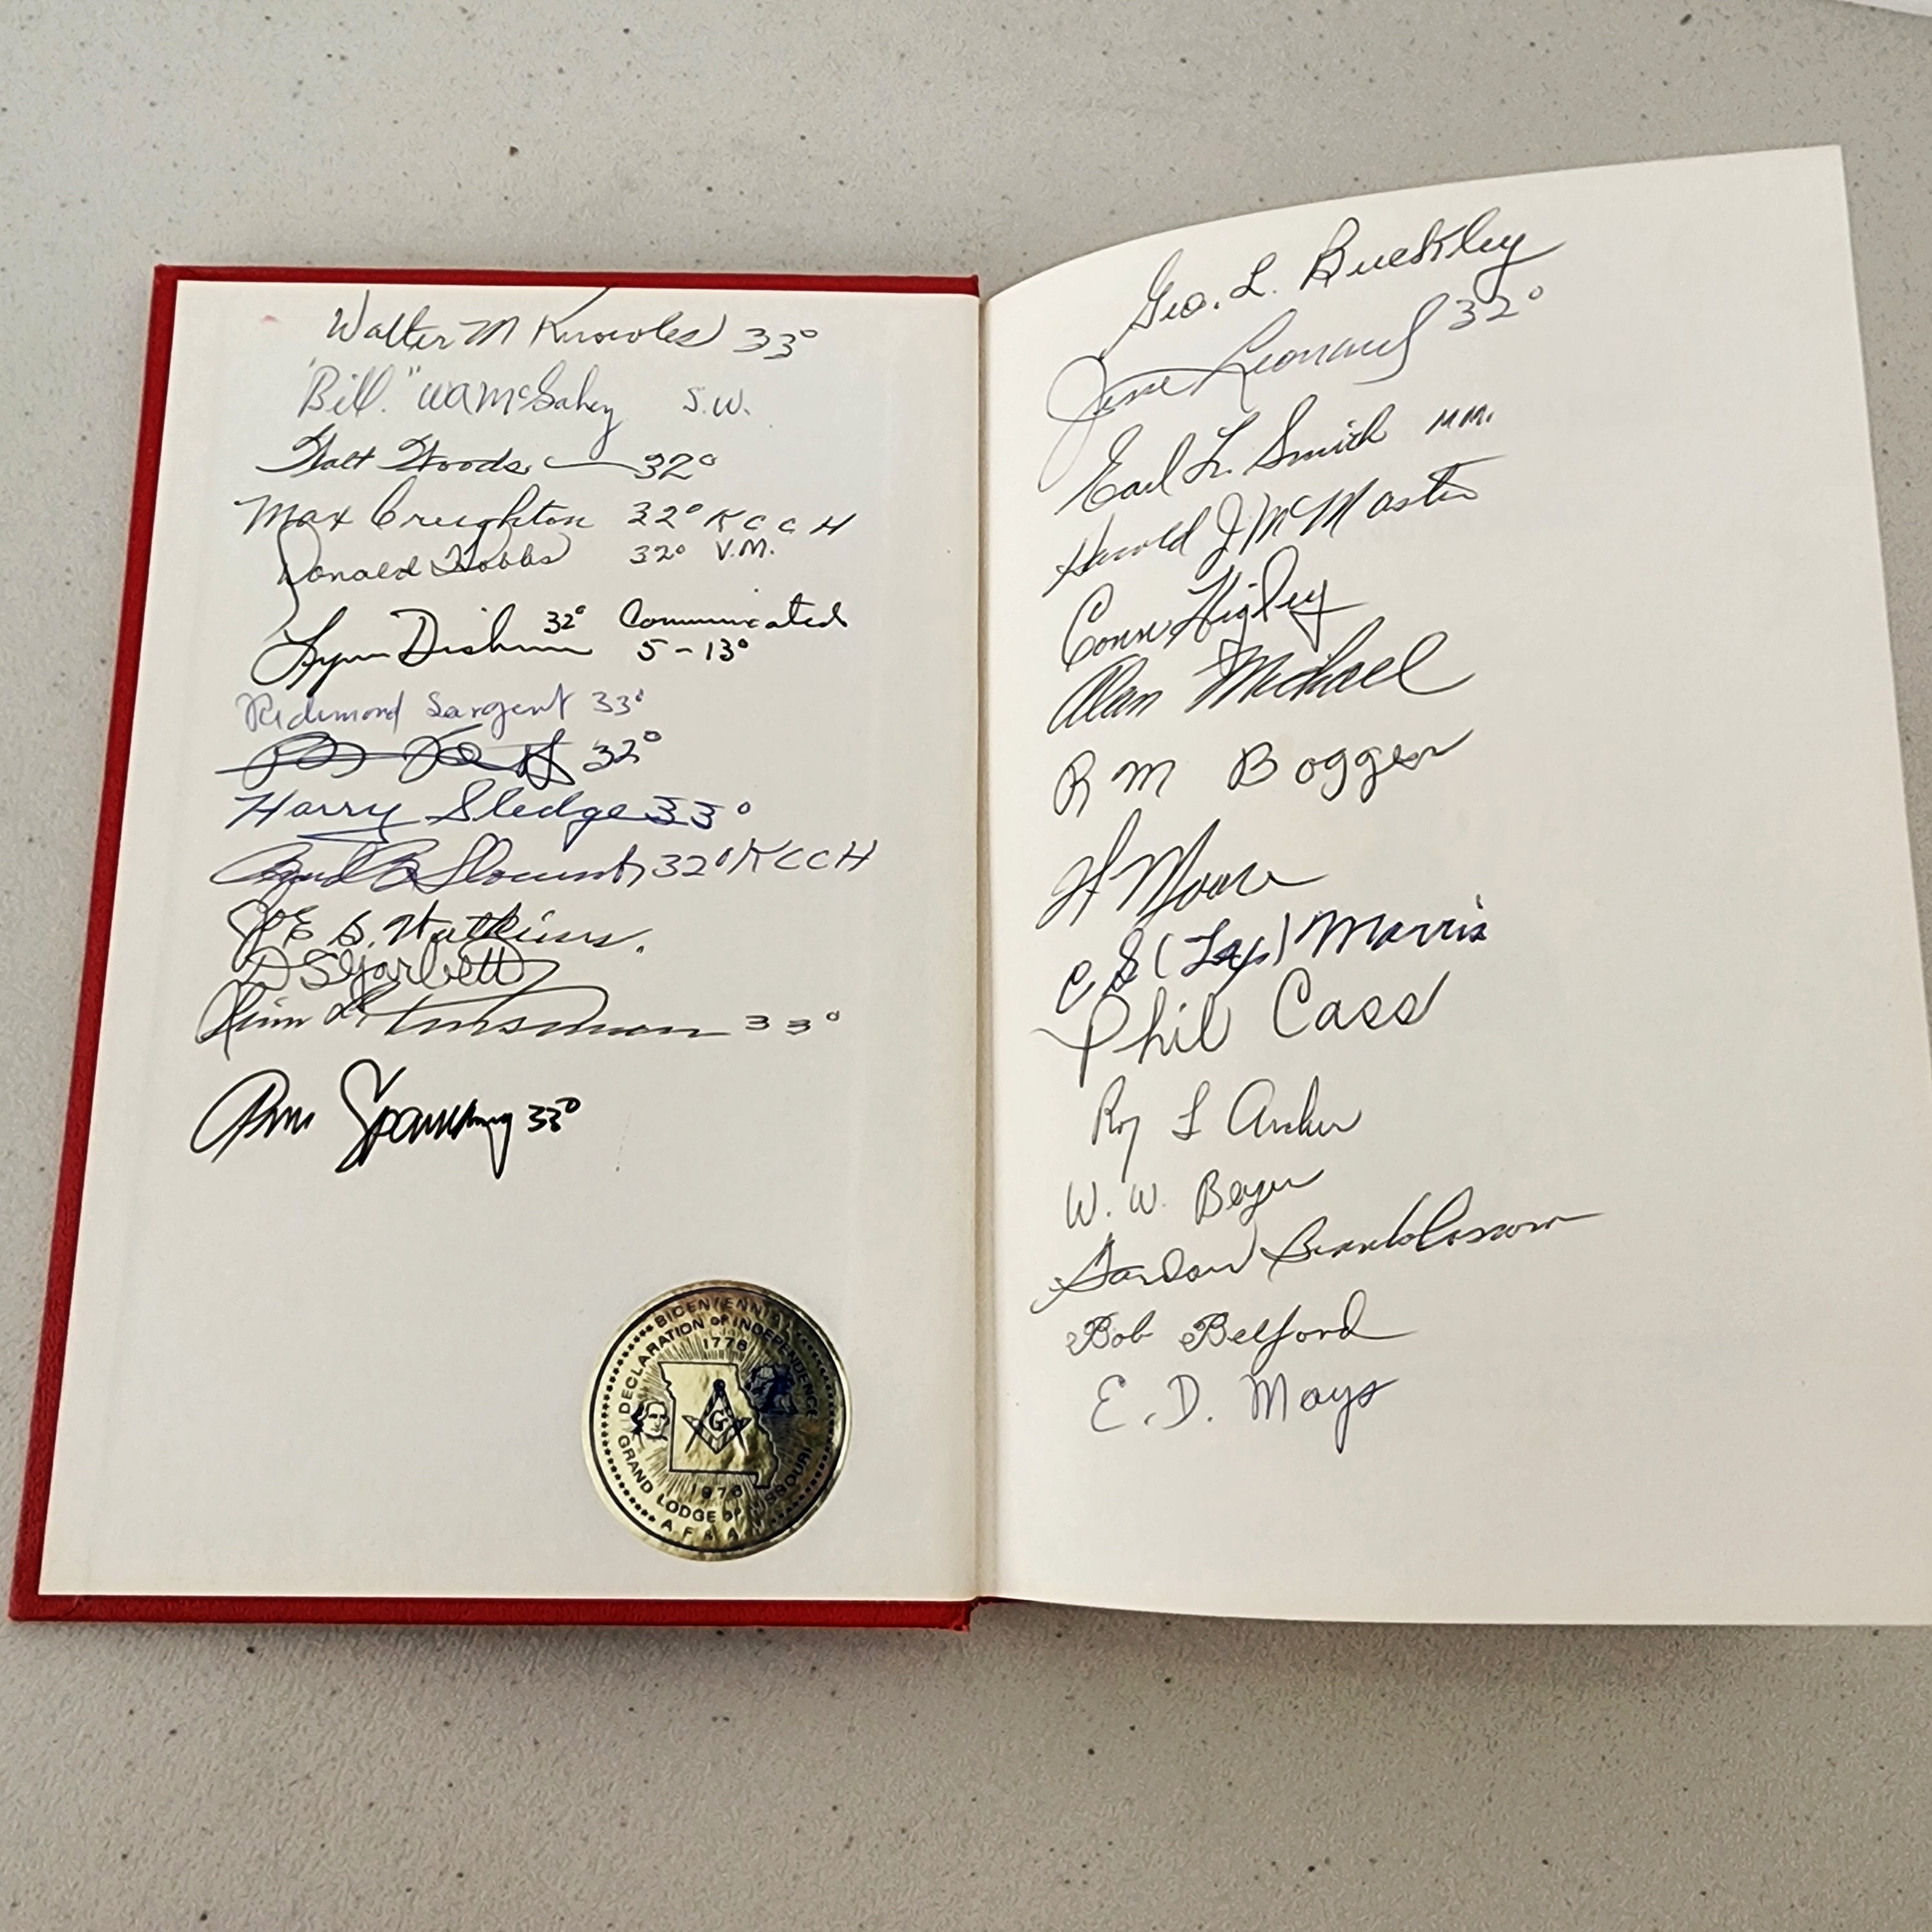 Walter M Knowles 33°
"Bill" WA McGahey S.W.
Walt Woods 32°
Max Creighton 32° KCCH
Donald Hobbs 32° V.M.
Lynn 32° Communicated
5-13°
Richmond Sargent 33°
32°
Harry Sledge 33°
32° KCCH
Joe S. Watkins.
D S Garbett
Jim 33°
33°
BICENTENNIAL
DECLARATION OF INDEPENDENCE
1776
G
1976
GRAND LODGE OF MISSOURI
A F & A M
Geo. L. Buckley
Jim Leonard 32°
Earl L. Smith M.M.
Harold J McMaster
Conn Higley
Alan Michael
R M Boggess
H Moore
C E (Tex) Morris
Phil Cass
Roy L Archer
W. W. Beyer
Gordon
Bob Belford
E. D. Mays